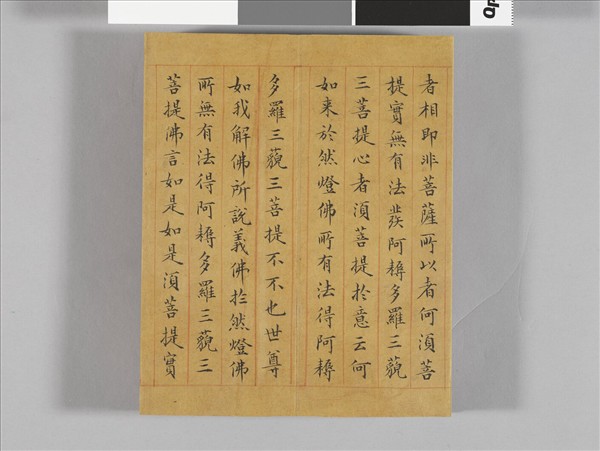 者相即非菩薩所以者何須菩
提實無有法發阿耨多羅三藐
三菩提心者須菩提於意云何
如来於然燈佛所有法得阿耨
多羅三藐三菩提不不也世尊
如我解佛所說義佛於然燈佛
所無有法得阿耨多羅三藐三
菩提佛言如是如是須菩提實